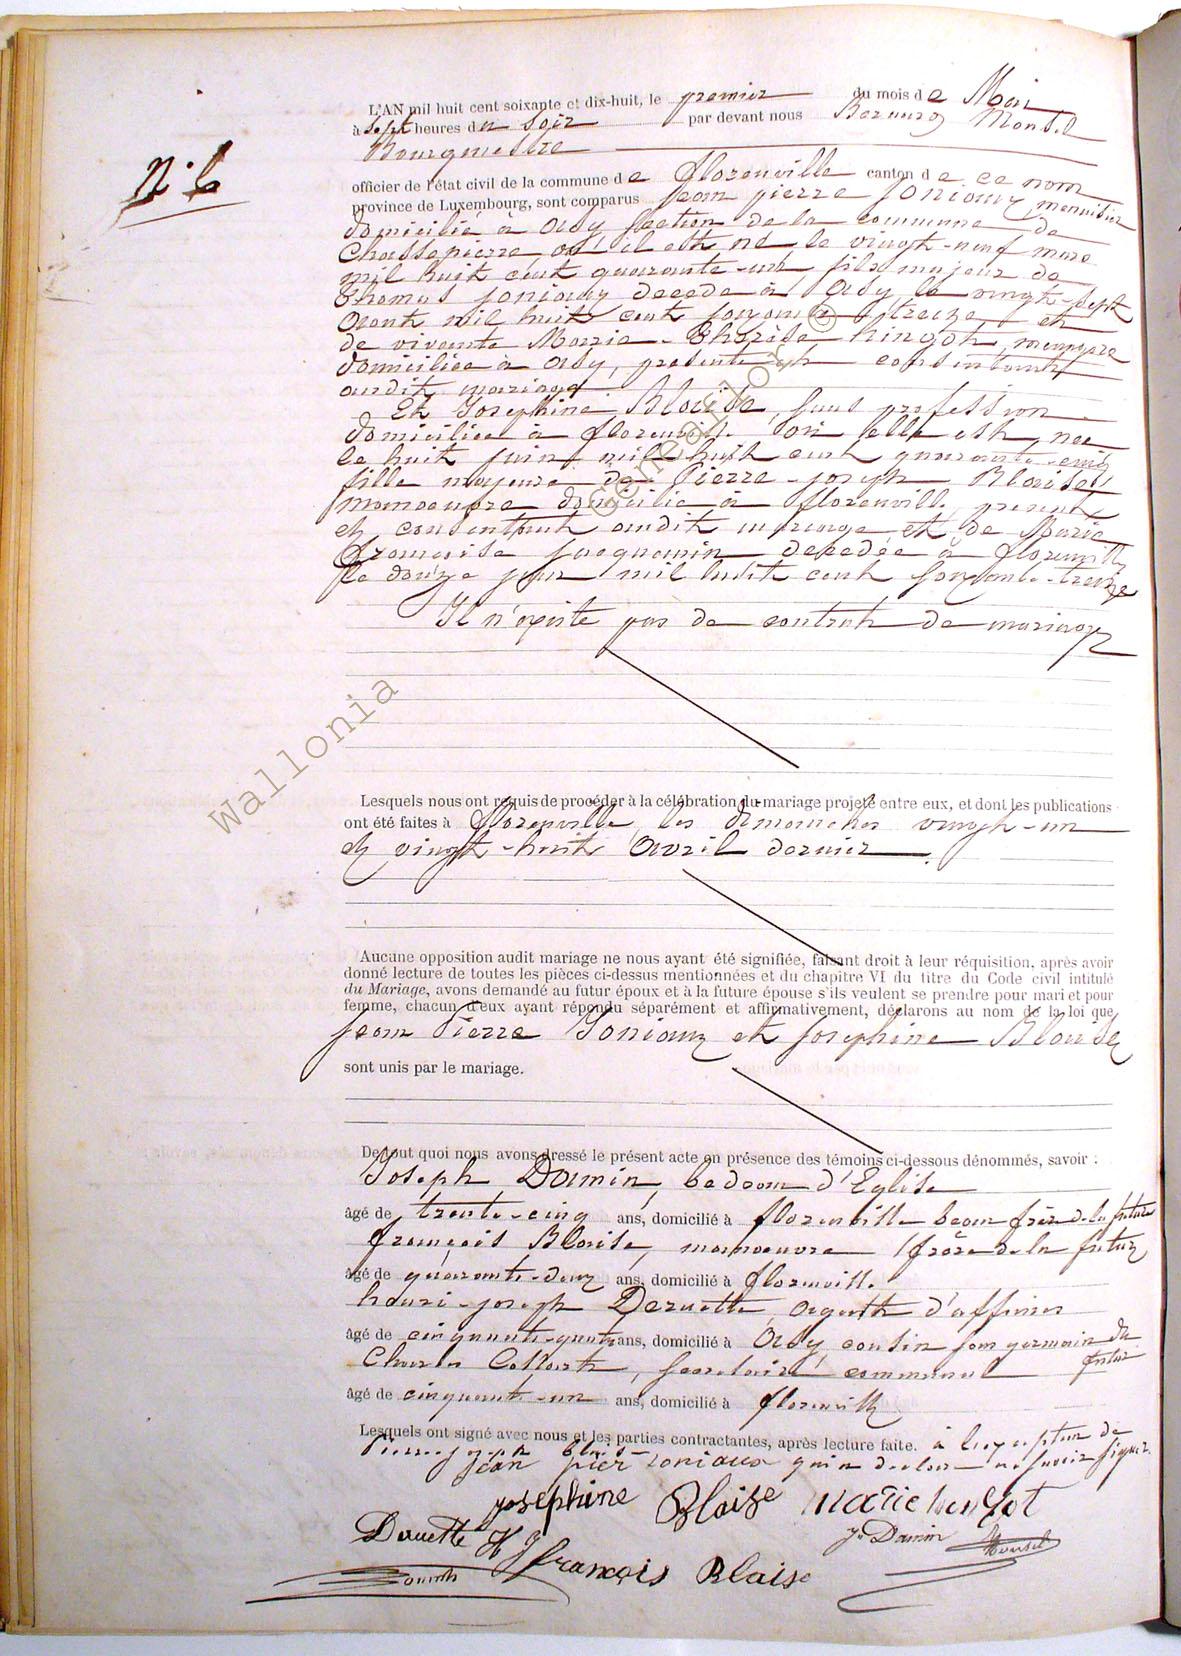 L'AN mil huit cent soixante et dix-huit, le premier du mois de Mai
à sept heures du soir par devant nous Bernard Monsel
Bourgmestre
N° 6
officier de l'état civil de la commune de Florenville canton de ce nom
province de Luxembourg, sont comparus Jean pierre Joniaux menuisier
domicilié à Asy section de la commune de
Chassepierre où il est né le vingt-neuf mars
mil huit cent quarante-un fils majeur de
Thomas Joniaux décédé à Asy le vingt-sept
Août mil huit cent soixante treize et
de vivante Marie-Thérèse hingot, ménagère
domiciliée à Asy, présente et consentante
audit mariage
Et Josephine Blaise, sans profession
domiciliée à florenville où elle est née
le huit juin mil huit cent quarante-cinq
fille majeure de Pierre-joseph Blaise
manoeuvre domicilié à florenville, présent
et consentant audit mariage et de Marie
françoise jacquemin décédée à florenville
le douze juin mil huit cent soixante-treize
Il n'existe pas de contrat de mariage
Wallonia Généalogie ©
Lesquels nous ont requis de procéder à la célébration du mariage projeté entre eux, et dont les publications
ont été faites à florenville, les dimanches vingt-un
et vingt-huit Avril dernier.
Aucune opposition audit mariage ne nous ayant été signifiée, faisant droit à leur réquisition, après avoir
donné lecture de toutes les pièces ci-dessus mentionnées et du chapitre VI du titre du Code civil intitulé
du Mariage, avons demandé au futur époux et à la future épouse s'ils veulent se prendre pour mari et pour
femme, chacun d'eux ayant répondu séparément et affirmativement, déclarons au nom de la loi que
Jean Pierre Joniaux et Josephine Blaise
sont unis par le mariage.
De tout quoi nous avons dressé le présent acte en présence des témoins ci-dessous dénommés, savoir :
Joseph Damin, bedeau d'Eglise
âgé de trente-cinq ans, domicilié à florenville beau frère de la future
françois Blaise, manoeuvre frère de la future
âgé de quarante-deux ans, domicilié à florenville
henri-joseph Deruette, agent d'affaires
âgé de cinquante-quatre ans, domicilié à Asy, cousin sous germain du futur
Charles Collart, secrétaire communal
âgé de cinquante-un ans, domicilié à florenville
Lesquels ont signé avec nous et les parties contractantes, après lecture faite. à l'exception de
Pierre-joseph blaise qui a déclaré ne savoir signer.
jean pier Joniaux
josephine Blaise marie hen got
Deruette H J J. Damin Monsel
françois Blaise